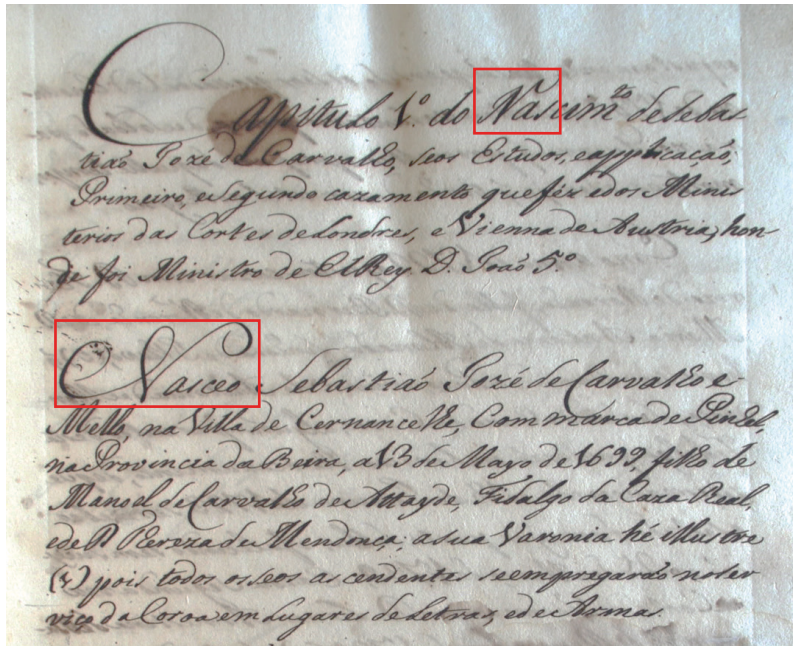 Capitulo 1.º do Nascim.to de Sebas
tiaõ Jozé de Carvalho, seos Estudos, e applicaçaõ,
Primeiro, e Segundo cazamento que fez e dos Minis
terios das Cortes de Londres, e Vienna de Austria, hon
de foi Ministro de ElRey D. Joaõ 5.º
Nasceo Sebastiaõ Jozé de Carvalho e
Mello, na Villa de Cernancelhe, Commarca de Pinhel,
na Provincia da Beira, a 13 de Mayo de 1699, filho de
Manoel de Carvalho de Attayde, Fidalgo da Caza Real,
e de D. Thereza de Mendonca; a sua Varonia hé illustre
pois todos os seos ascendentes se empregaraõ no ser
viço da Coroa em Lugares de Letras, e de Armas.